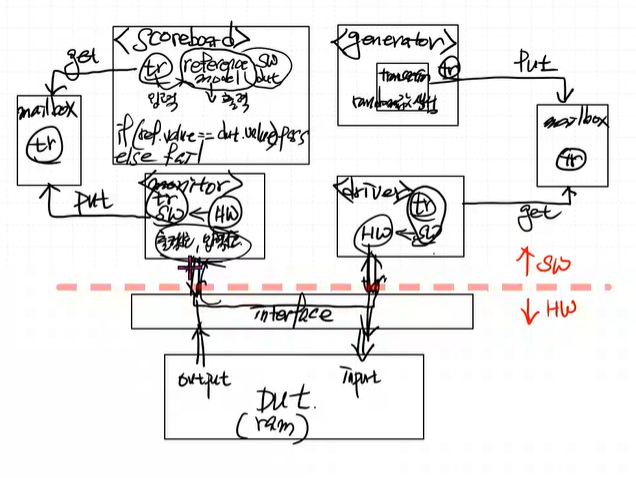 <scoreboard>
tr
reference
model
SW
out
입력
출력
if(ref.value == dut.value) pass
else fail
get
mailbox
tr
put
<generator>
tr
transaction
random값 생성
put
mailbox
tr
get
<monitor>
tr
SW ← HW
출력값, 입력값
<driver>
tr
HW ← SW
↑ SW
↓ HW
tr
interface
output
input
DUT.
(ram)